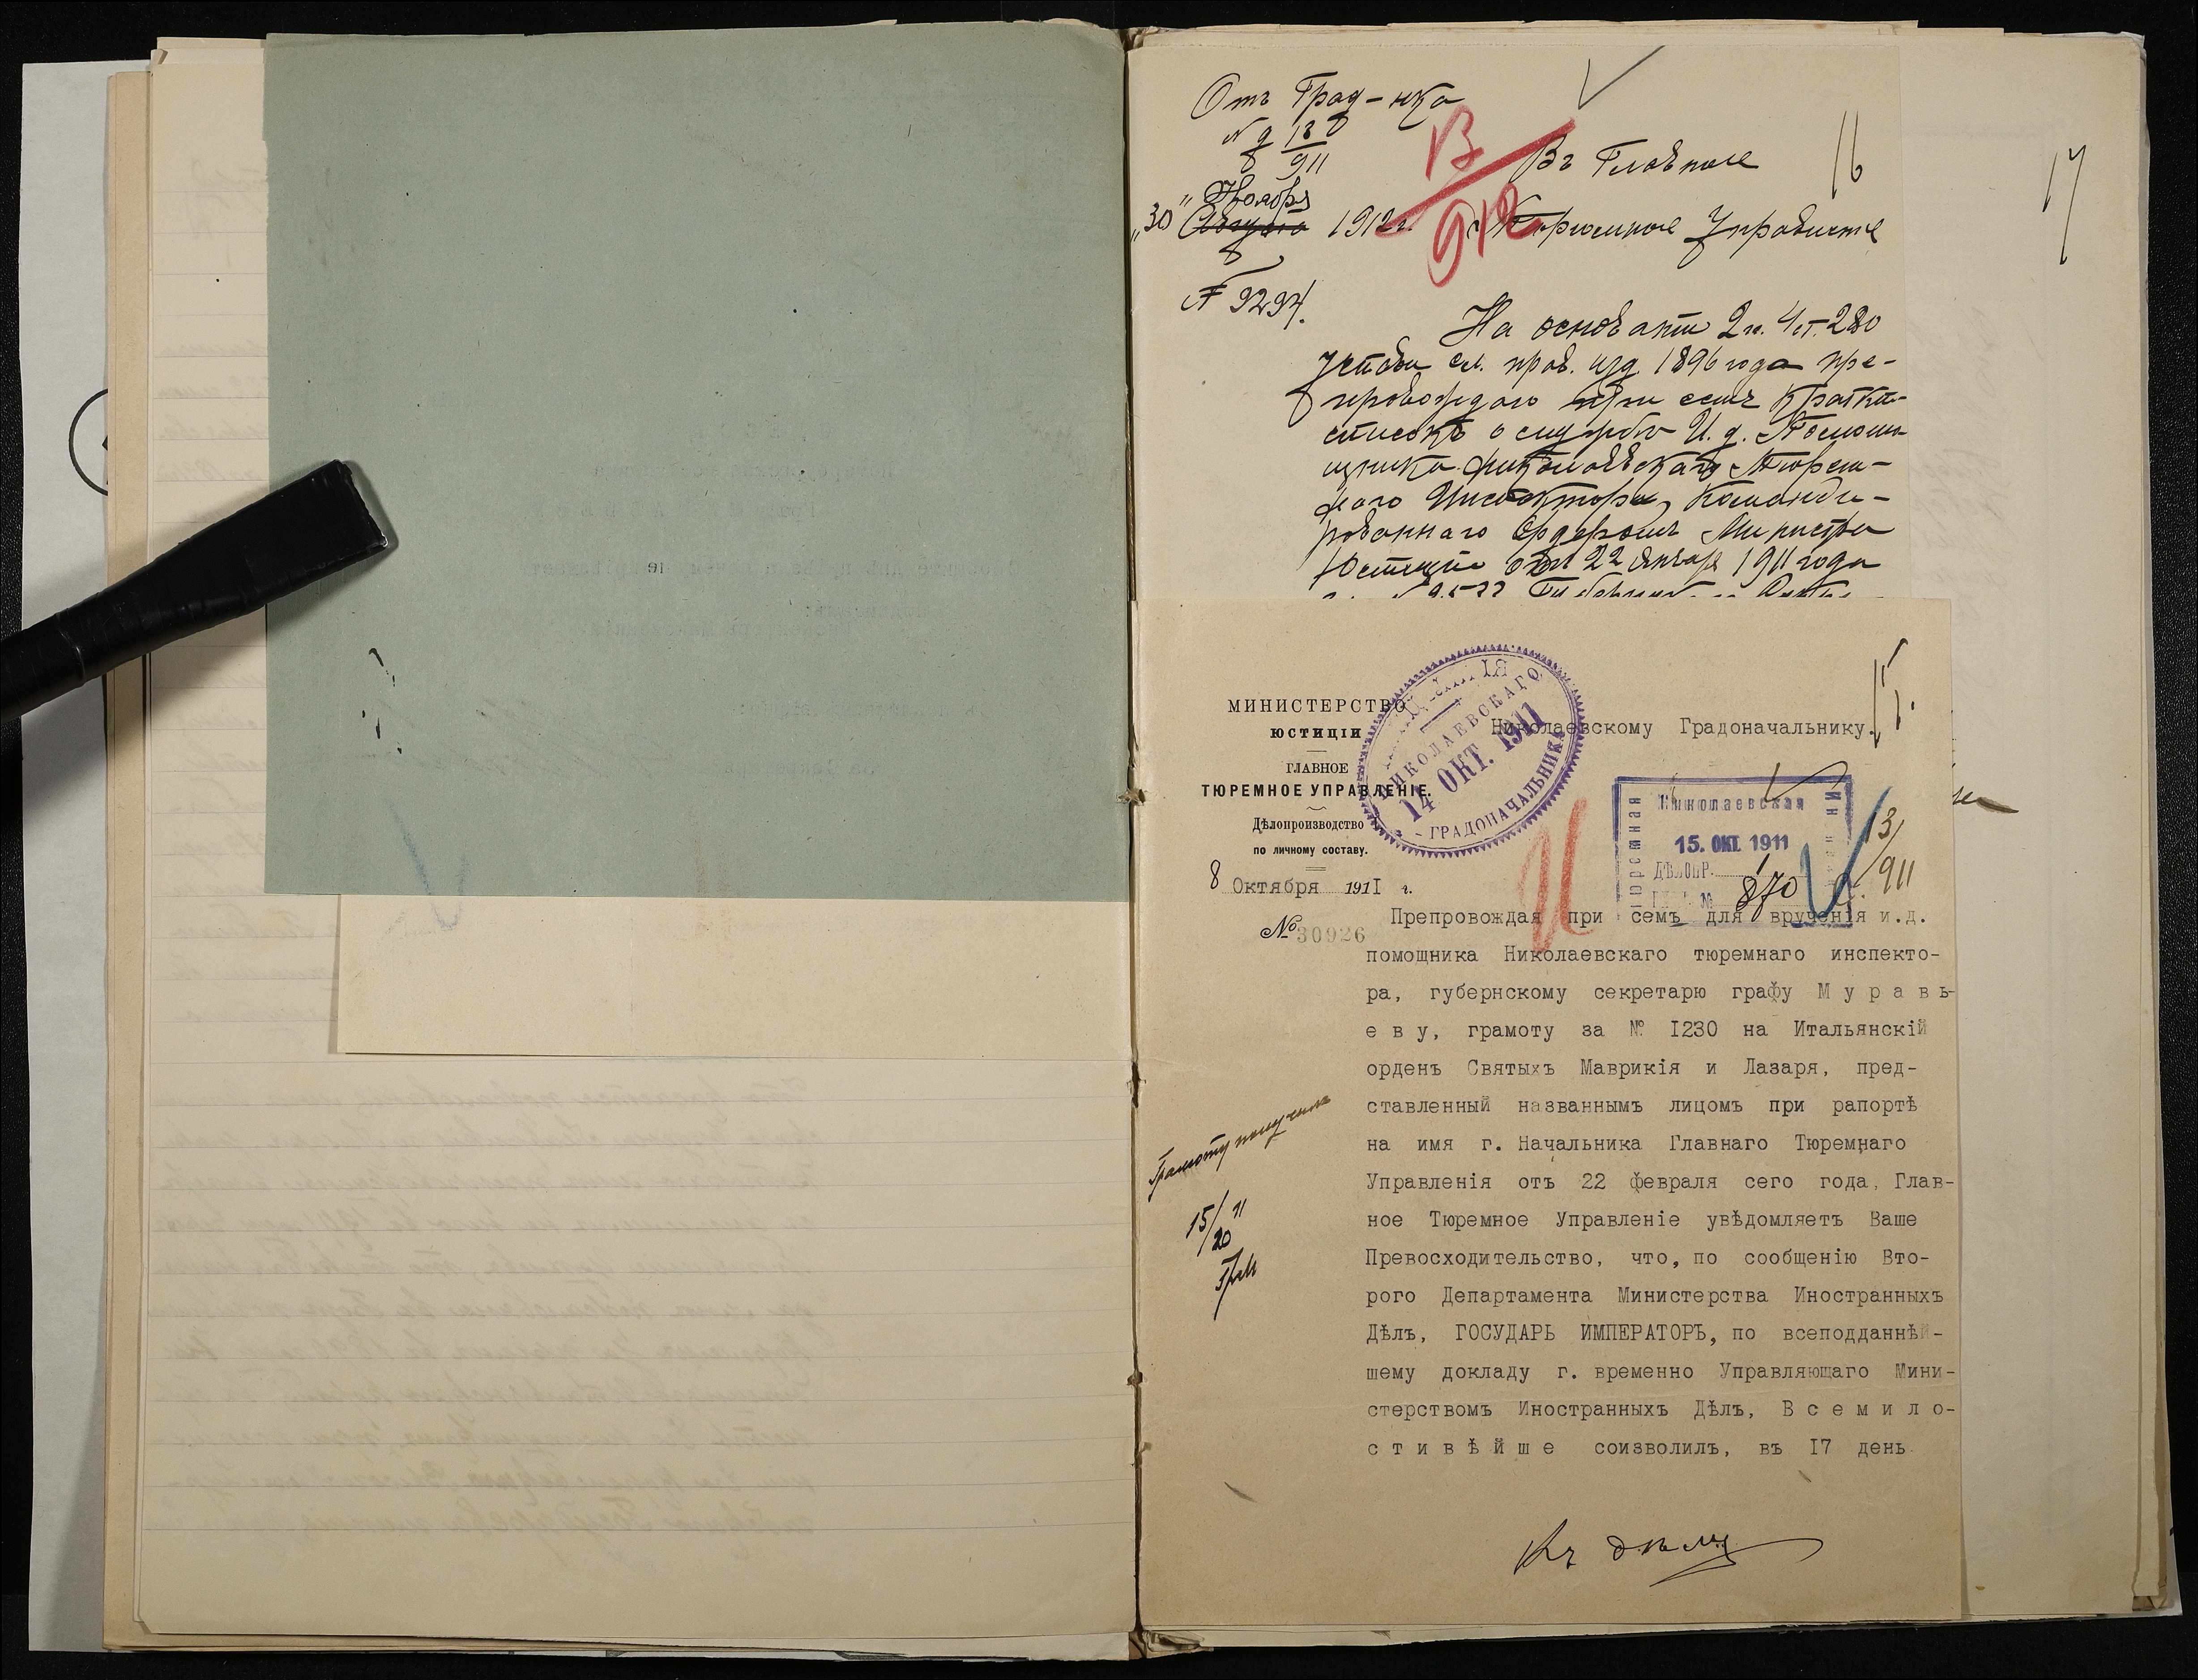 Отъ Град-нка
В/912
Въ Главное
16
17
Ноября
"30" Августа 1912 г.
Тюремное Управленіе
№ 9294.
На основаніи 2 п. 4 ст. 280
Устава сл. прав. изд 1896 года пре-
провождаю при семъ краткій
списокъ о службѣ И. д. Помощ-
щника Николаевскаго Тюрем-
наго Инспектора, Команди-
рованнаго Ордеромъ Министра
Юстиціи отъ 22 Января 1911 года
15.
МИНИСТЕРСТВО
ЮСТИЦІИ
ГЛАВНОЕ
ТЮРЕМНОЕ УПРАВЛЕНІЕ.
Дѣлопроизводство
по личному составу.
8 Октября 1911 г.
№ 30926
НИКОЛАЕВСКАГО
14 ОКТ. 1911
ГРАДОНАЧАЛЬНИКА
Николаевскому Градоначальнику.
Николаевская
15. ОКТ. 1911
ДѢЛОПР.
№ 870
13/911
Препровождая при семъ для врученія и.д.
помощника Николаевскаго тюремнаго инспекто-
ра, губернскому секретарю графу Муравь-
еву, грамоту за № I230 на Итальянскій
орденъ Святыхъ Маврикія и Лазаря, пред-
ставленный названнымъ лицомъ при рапортѣ
на имя г. Начальника Главнаго Тюремнаго
Управленія отъ 22 февраля сего года, Глав-
ное Тюремное Управленіе увѣдомляетъ Ваше
Превосходительство, что, по сообщенію Вто-
рого Департамента Министерства Иностранныхъ
Дѣлъ, ГОСУДАРЬ ИМПЕРАТОРЪ, по всеподданнѣй-
шему докладу г. временно Управляющаго Мини-
стерствомъ Иностранныхъ Дѣлъ, Всемило-
стивѣйше соизволилъ, въ I7 день
Грамоту получилъ
15/20 11
Къ дѣлу